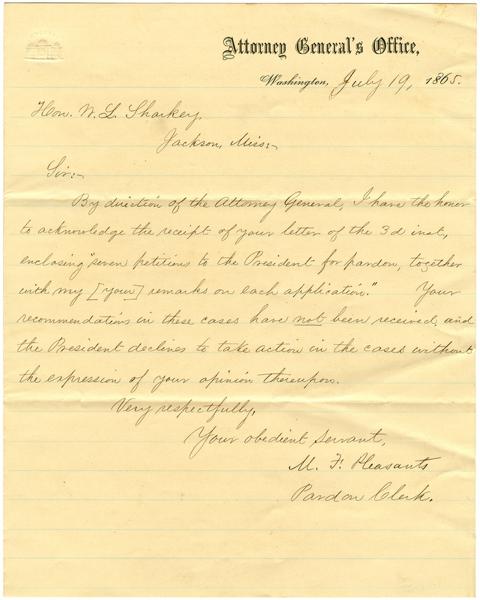 Attorney General's Office,
Washington, July 19, 1865.
Hon. W. L. Sharkey,
Jackson, Miss:-
Sir:-
By direction of the Attorney General, I have the honor
to acknowledge the receipt of your letter of the 3d inst,
enclosing "seven petitions to the President for pardon, together
with my [your] remarks on each application." Your
recommendations in these cases have not been received, and
the President declines to take action in the cases without
the expression of your opinion thereupon.
Very respectfully,
Your obedient servant,
M. F. Pleasants
Pardon Clerk.